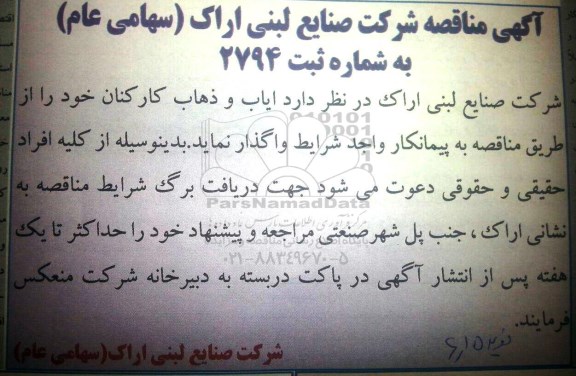 آگهی مناقصه شرکت صنایع لبنی اراک (سهامی عام)
به شماره ثبت ۲۷۹۴
شرکت صنایع لبنی اراک در نظر دارد ایاب و ذهاب کارکنان خود را از
طریق مناقصه به پیمانکار واجد شرایط واگذار نماید.بدینوسیله از کلیه افراد
حقیقی و حقوقی دعوت می شود جهت دریافت برگ شرایط مناقصه به
نشانی اراک ، جنب پل شهرصنعتی مراجعه و پیشنهاد خود را حداکثر تا یک
هفته پس از انتشار آگهی در پاکت دربسته به دبیرخانه شرکت منعکس
فرمایند.
شرکت صنایع لبنی اراک(سهامی عام)
ParsNamadData
۰۲۱-۸۸۳۴۹۶۷۰-۵